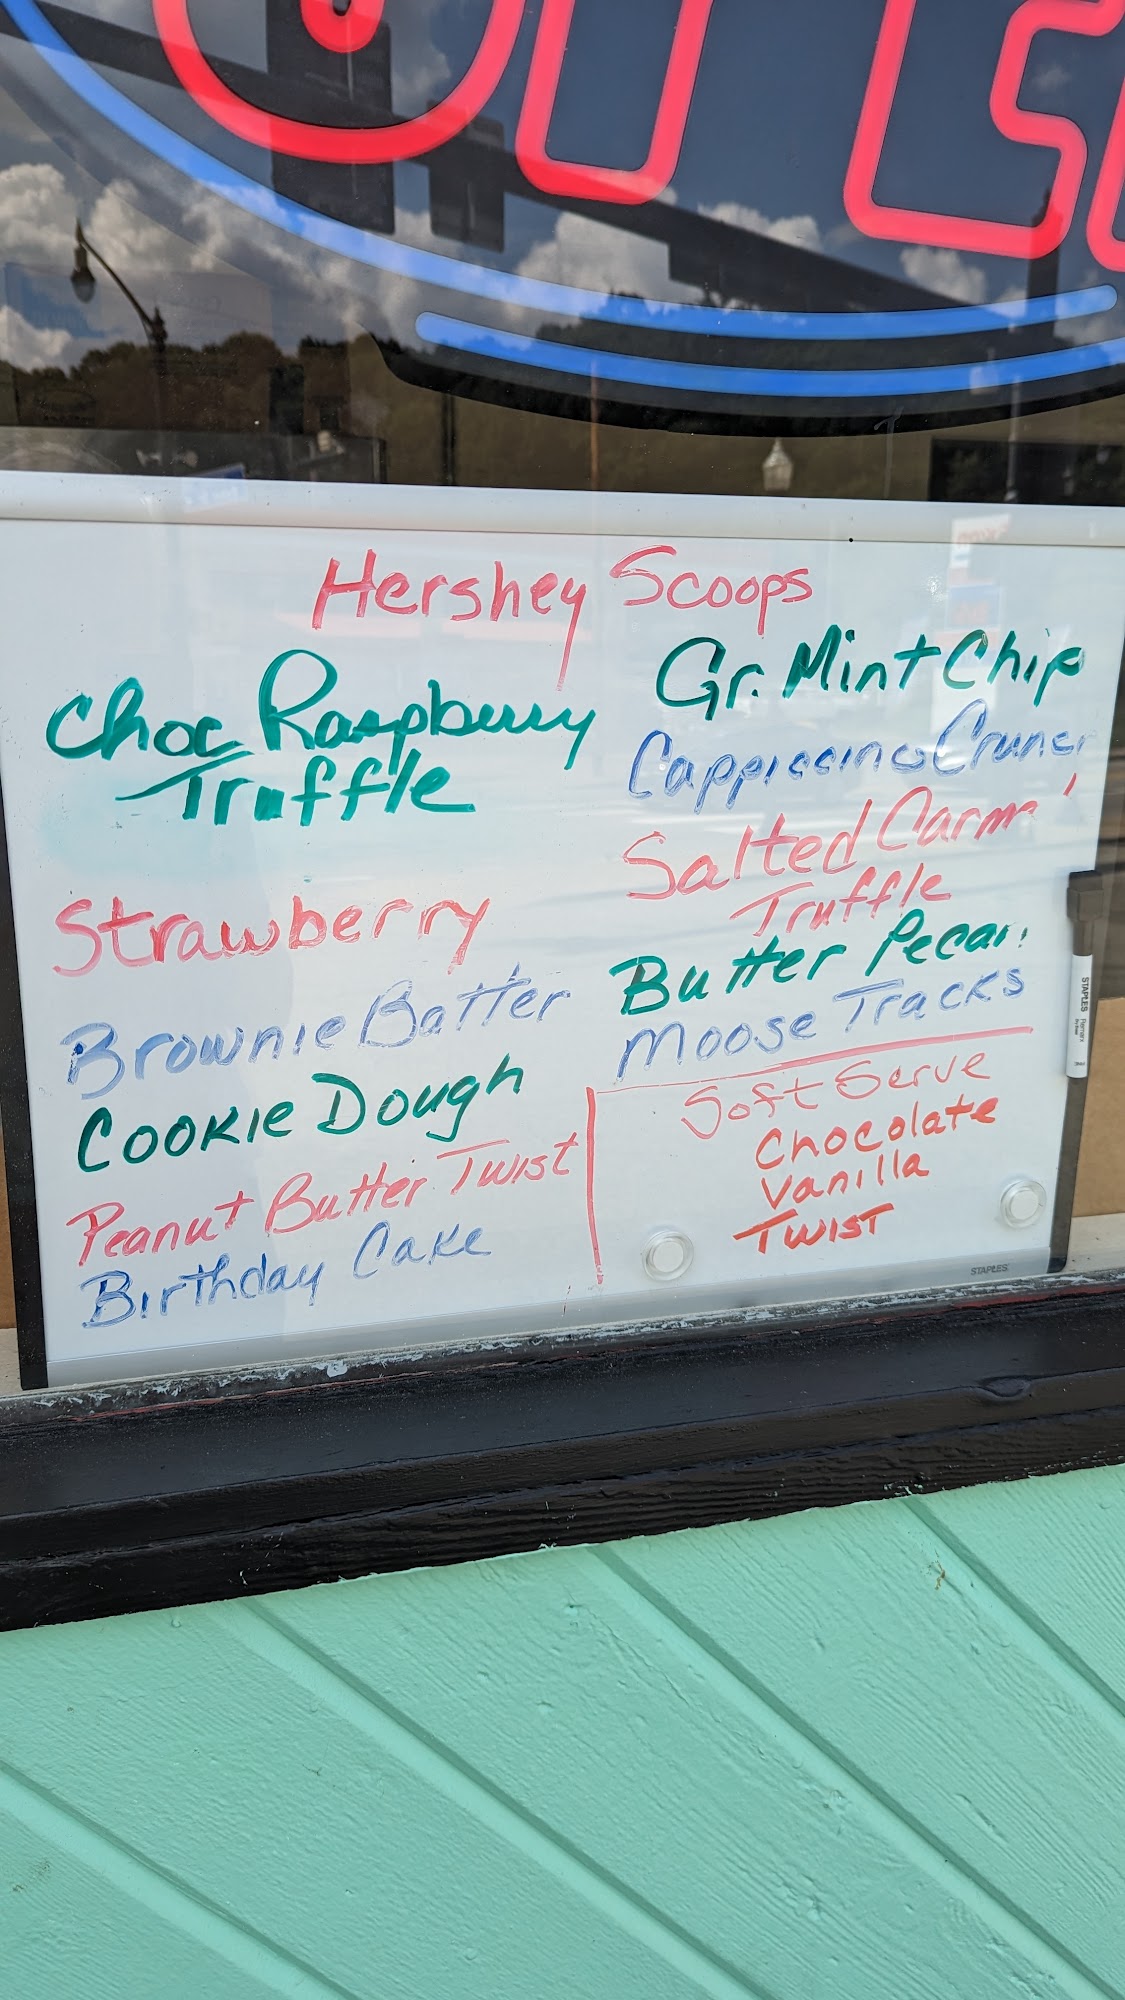 OPE
Hershey Scoops
Choc Raspberry
Truffle
Strawberry
Brownie Batter
Cookie Dough
Peanut Butter Twist
Birthday Cake
Gr. Mint Chip
Salted
Truffle
Butter Pecan
Moose Tracks
Soft Serve
Chocolate
Vanilla
Twist
STAPLES
STAPLES